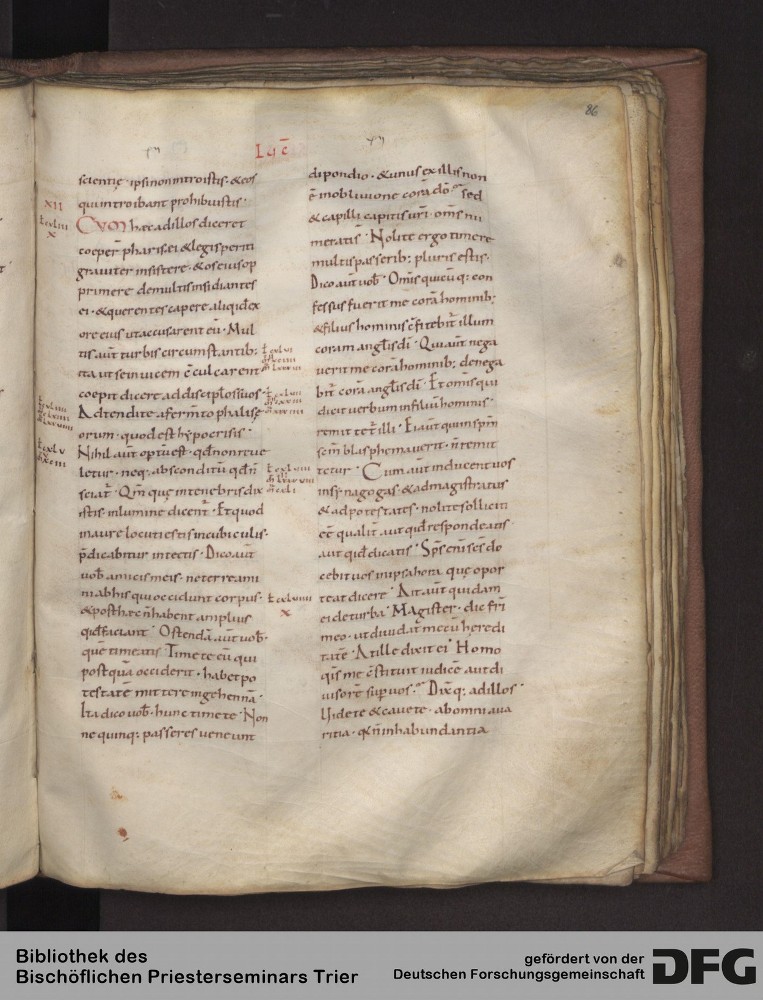 86
LUC̄
scientię · ipsi non introistis · & eos
qui introibant prohibuistis ·
XII
CVM haec ad illos diceret
X
coeper̄ pharisei & legis periti
grauiter insistere · & os eius op
primere de multis insidiantes
ei · & querentes capere aliquid ex
ore eius ut accusarent eū · Mul
tis aūt turbis circumstantib;
ita ut se inuicem c̄culcarent
coepit dicere ad discip̄los suos ·
Adtendite a ferm̄to pharise
orum · quod est hypocrisis ·
Nihil aūt op̄tū est · qđ non reue
letur · neq; absconditū qđ n̄
sciat̄ · Qm̄ quę in tenebris dix
istis · in lumine dicent̄ · Et quod
in aure locuti estis in cubiculis ·
p̄dicabitur in tectis · Dico aūt
uob̄ amicis meis · ne terreami
ni ab his qui occidunt corpus ·
X
& post haec n̄ habent amplius
qđ faciant · Ostendā aūt uob̄ ·
quē timeatis · Timete eū qui
postquā occiderit · habet po
testatē mittere in gehennā ·
Ita dico uob̄ · hunc timete · Non
ne quinq; passeres ueneunt
dipondio · & unus ex illis non
ē in obliuione corā dō · Sed
& capilli capitis uri · om̄s nu
merati s̄ · Nolite ergo timere
multis passerib; pluris estis ·
Dico aūt uob̄ · Om̄is quicūq; con
fessus fuerit me corā hominib;
& filius hominis c̄fitebit̄ illum
coram angl̄is dī · Qui aūt nega
uerit me corā hominib; denega
bit̄ corā angl̄is dī · Et om̄is qui
dicit uerbum in filiū hominis ·
remittet̄ illi · Ei aūt qui in spm̄
sc̄m blasphemauerit · n̄ remit
tetur · Cum aūt inducent uos
in synagogas · & ad magistratus
& ad potestates · nolite solliciti
eē qualit̄ aut quid respondeatis ·
aut quid dicatis · Sp̄s enī sc̄s do
cebit uos in ipsa hora quę opor
teat dicere · Ait aūt quidam
ei de turba · Magister · dic fr̄i
meo · ut diuidat̄ mecū heredi
tatē · At ille dixit ei · Homo
quis me c̄stituit iudicē aut di
uisorē sup uos · Dixitq; ad illos ·
Uidete & cauete · ab omni aua
ritia · q̄ n̄ in habundantia
Bibliothek des
Bischöflichen Priesterseminars Trier
gefördert von der
Deutschen Forschungsgemeinschaft
DFG